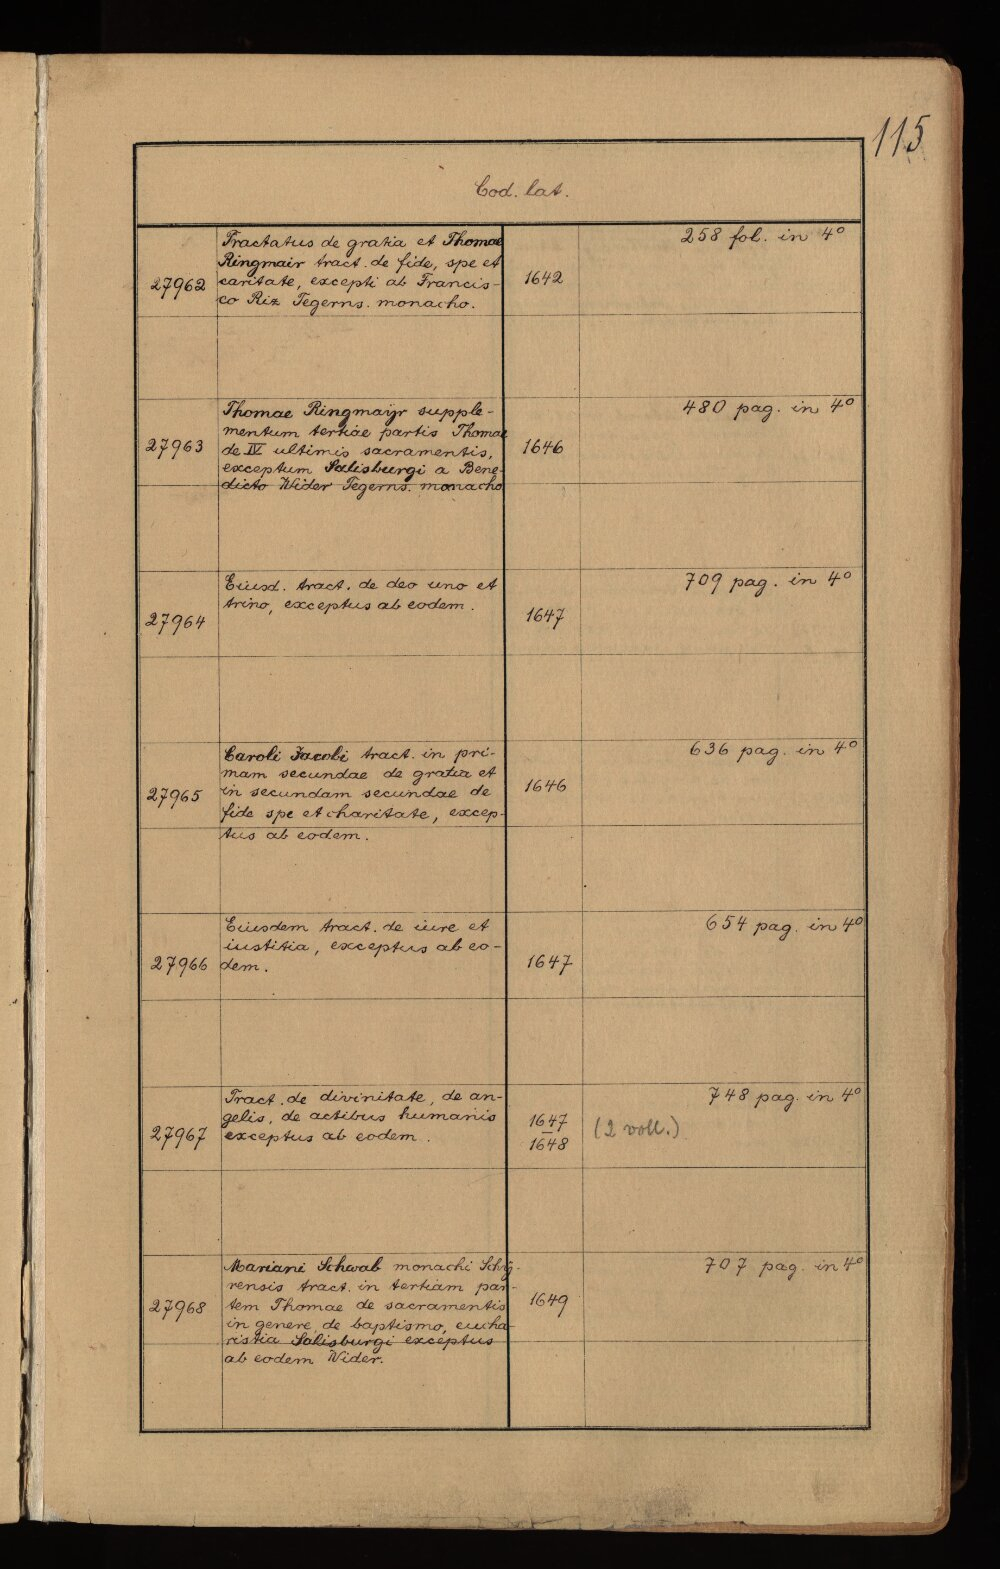 115
Cod. lat.
27962
Tractatus de gratia et Thomae
Ringmair tract. de fide, spe et
caritate, excepti ab Francis-
co Riz Tegerns. monacho.
1642
258 fol. in 4°
27963
Thomae Ringmaÿr supple-
mentum tertiae partis Thomae
de IV ultimis sacramentis,
exceptum Salisburgi a Bene-
dicto Wider Tegerns. monacho
1646
480 pag. in 4°
27964
Eiusd. tract. de deo uno et
trino, exceptus ab eodem.
1647
709 pag. in 4°
27965
Caroli Jacobi tract. in pri-
mam secundae de gratia et
in secundam secundae de
fide spe et charitate, excep-
tus ab eodem.
1646
636 pag. in 4°
27966
Eiusdem tract. de iure et
iustitia, exceptus ab eo-
dem.
1647
654 pag. in 4°
27967
Tract. de divinitate, de an-
gelis, de actibus humanis
exceptus ab eodem.
1647
—
1648
(2 voll.)
748 pag. in 4°
27968
Mariani Schwab monachi Schÿ-
rensis tract. in tertiam par-
tem Thomae de sacramentis
in genere, de baptismo, eucha-
ristia Salisburgi exceptus
ab eodem Wider.
1649
707 pag. in 4°